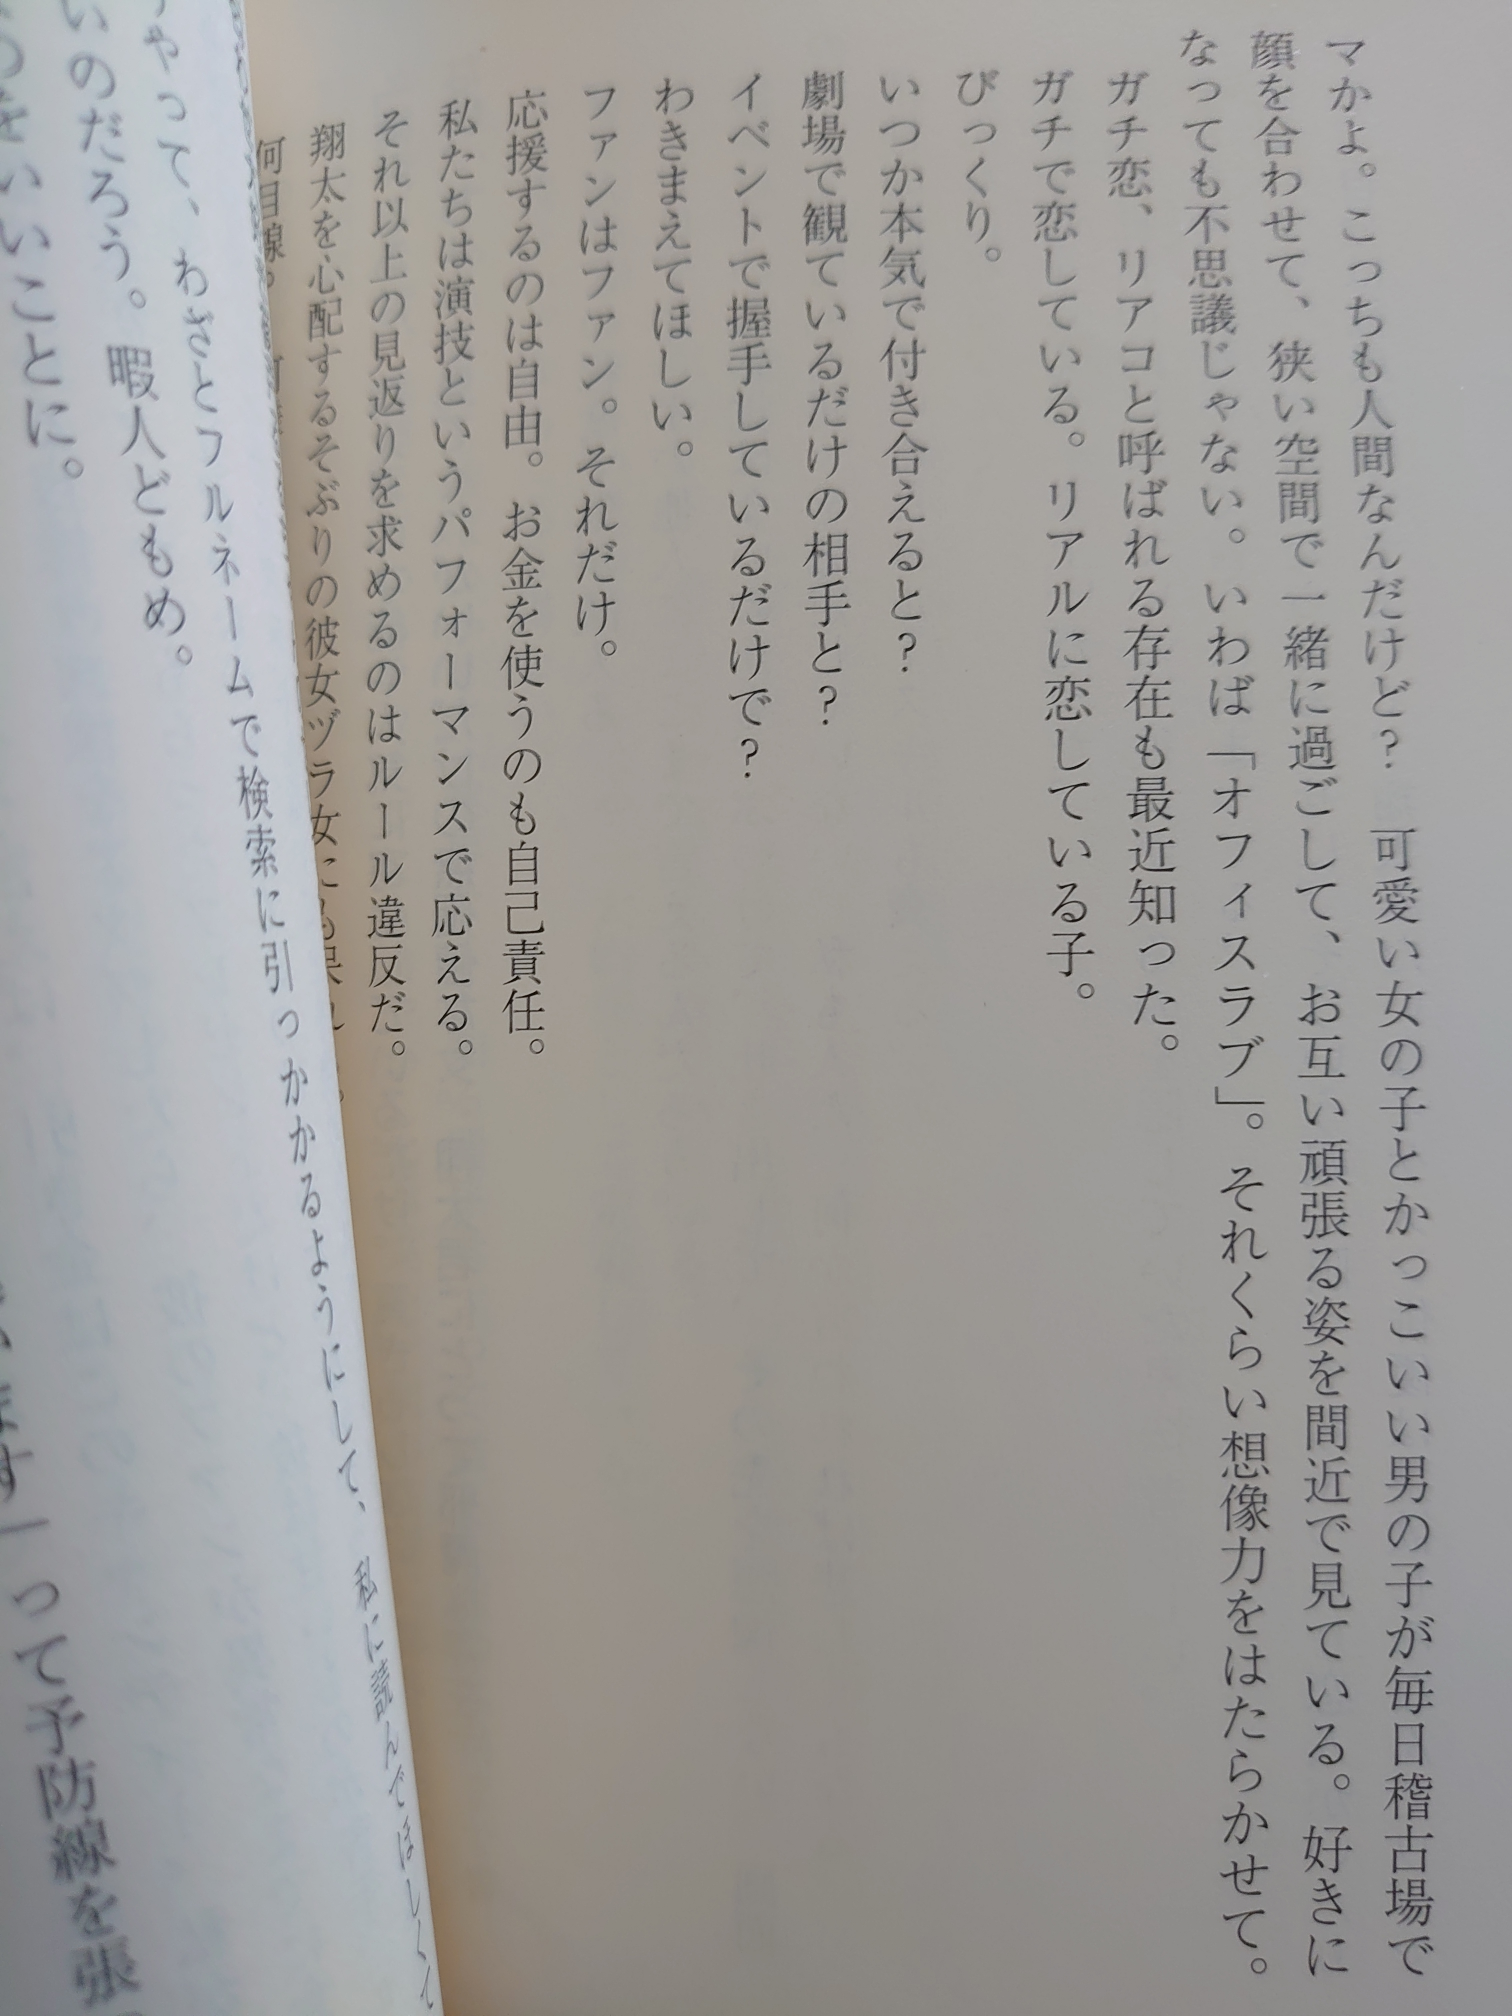 マかよ。こっちも人間なんだけど? 可愛い女の子とかっこいい男の子が毎日稽古場で
顔を合わせて、狭い空間で一緒に過ごして、お互い頑張る姿を間近で見ている。好きに
なっても不思議じゃない。いわば「オフィスラブ」。それくらい想像力をはたらかせて。
ガチ恋、リアコと呼ばれる存在も最近知った。
ガチで恋している。リアルに恋している子。
びっくり。
いつか本気で付き合えると?
劇場で観ているだけの相手と?
イベントで握手しているだけで?
わきまえてほしい。
ファンはファン。それだけ。
応援するのは自由。お金を使うのも自己責任。
私たちは演技というパフォーマンスで応える。
それ以上の見返りを求めるのはルール違反だ。
翔太を心配するそぶりの彼女ヅラ女にも呆れ
何目線。
やって、わざとフルネームで検索に引っかかるようにして、私に読んでほしくて
いのだろう。暇人どもめ。
をいいことに。
ます」って予防線を張